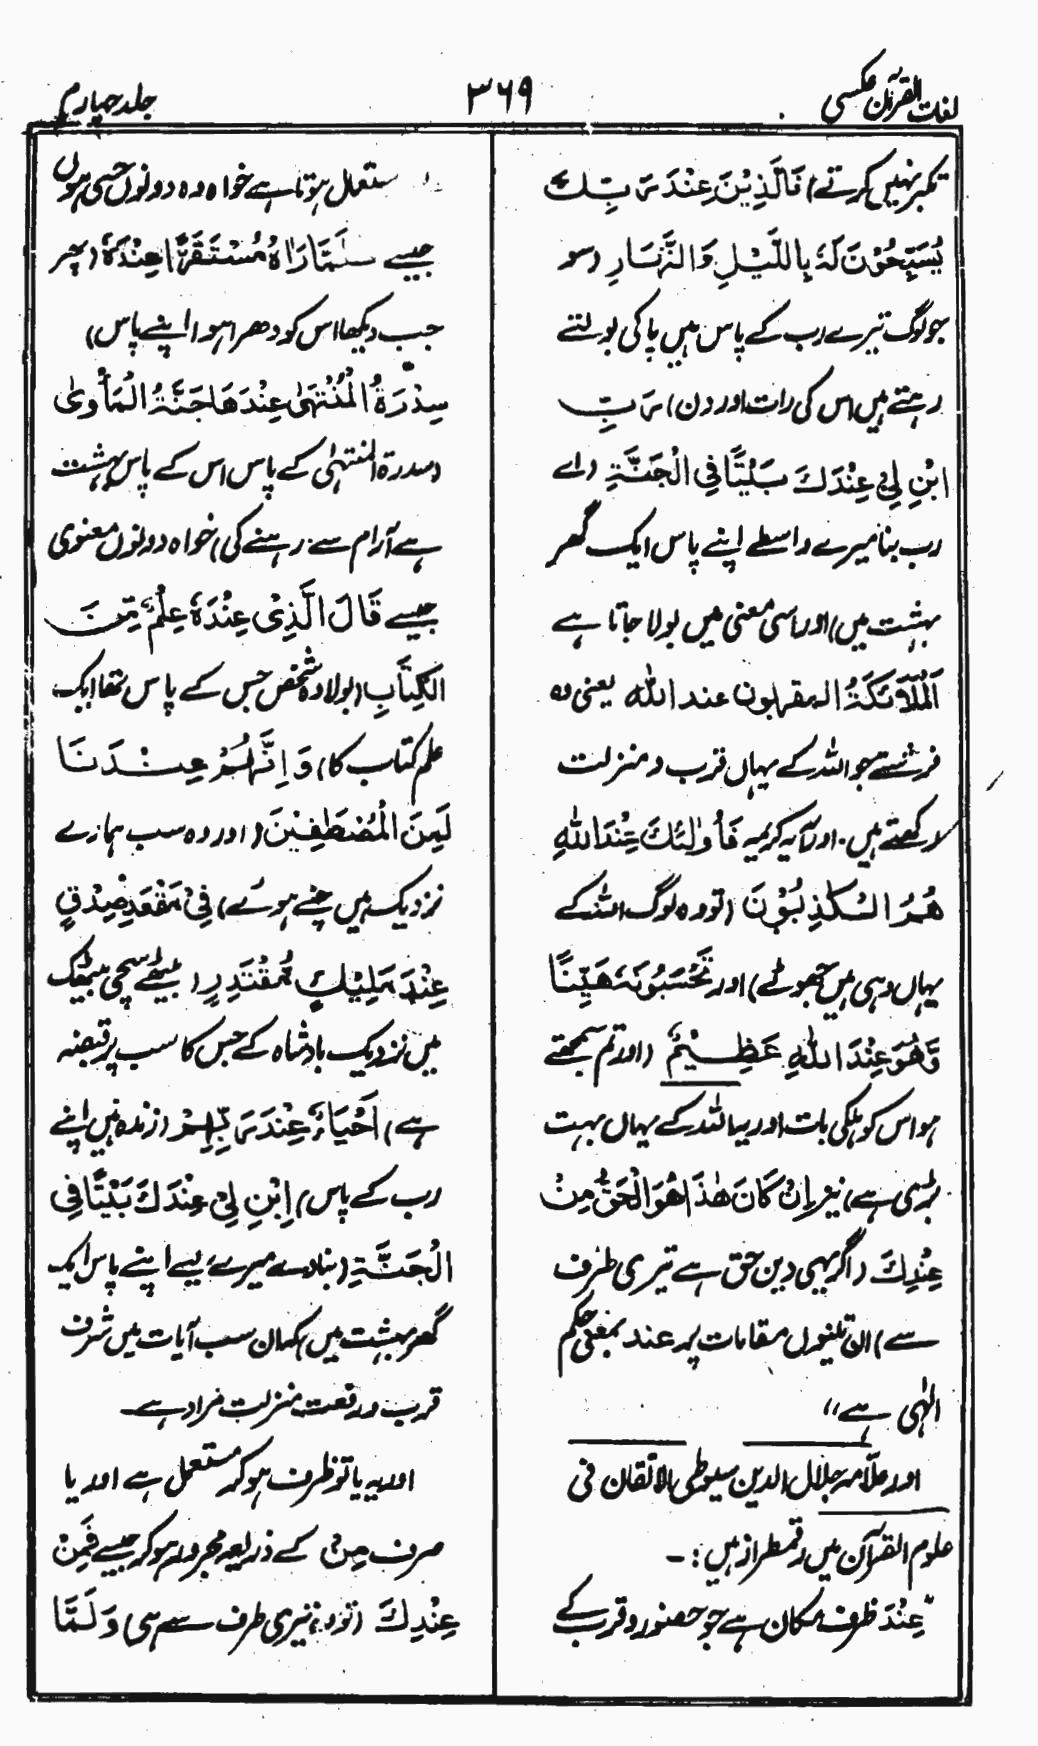 لغات القرآن عکسی
۳۶۹
جلد چہارم
تکبر نہیں کرتے) فَالَّذِيْنَ عِنْدَ رَبِّكَ
يُسَبِّحُوْنَ لَهٗ بِاللَّيْلِ وَالنَّهَارِ (سو
جو لوگ تیرے رب کے پاس ہیں پاکی بولتے
رہتے ہیں اس کی رات اور دن) رَبِّ
ابْنِ لِيْ عِنْدَكَ بَيْتًا فِي الْجَنَّةِ (اے
رب بنا میرے واسطے اپنے پاس ایک گھر
بہشت میں) اور اسی معنی میں بولا جاتا ہے
اَلْمَلَائِكَةُ المقربون عند اللہ یعنی وہ
فرشتے جو اللہ کے یہاں قرب و منزلت
رکھتے ہیں۔ اور آیہ کریمہ فَأُولٰئِكَ عِنْدَ اللهِ
هُمُ الْكٰذِبُوْنَ (تو وہ لوگ اللہ کے
یہاں وہی ہیں جھوٹے) اور تَحْسَبُوْنَهٗ هَيِّنًا
وَّهُوَ عِنْدَ اللهِ عَظِيْمٌ (اور تم سمجھتے
ہو اس کو ہلکی بات اور یہ اللہ کے یہاں بہت
بڑی ہے) نیز اِنْ كَانَ هٰذَا هُوَ الْحَقَّ مِنْ
عِنْدِكَ (اگر یہی دین حق ہے تیری طرف
سے) ان تینوں مقامات پر عند بمعنی حکم
الٰہی ہے،،
اور علّامہ جلال الدین سیوطی الاتقان فی
علوم القرآن میں رقمطراز ہیں:۔
"عِنْدَ ظرف مکان ہے جو حضور و قرب کے
ستعمل ہوتا ہے خواہ وہ دونوں حسی ہوں
جیسے فَلَمَّا رَاٰهُ مُسْتَقِرًّا عِنْدَهٗ (پھر
جب دیکھا اس کو دھرا ہوا اپنے پاس)
سِدْرَةُ الْمُنْتَهٰى عِنْدَهَا جَنَّةُ الْمَأْوٰى
(سدرۃ المنتہٰی کے پاس اس کے پاس بہشت
ہے آرام سے رہنے کی) خواہ دونوں معنوی
جیسے قَالَ الَّذِيْ عِنْدَهٗ عِلْمٌ مِّنَ
الْكِتٰبِ (بولا وہ شخص جس کے پاس تھا ایک
علم کتاب کا) وَاِنَّهُمْ عِنْدَنَا
لَمِنَ الْمُصْطَفَيْنَ (اور وہ سب ہمارے
نزدیک ہیں چنے ہوئے) فِيْ مَقْعَدِ صِدْقٍ
عِنْدَ مَلِيْكٍ مُّقْتَدِرٍ (بیٹھے سچی بیٹھک
میں نزدیک بادشاہ کے جس کا سب پر قبضہ
ہے) اَحْيَاءٌ عِنْدَ رَبِّهِمْ (زندہ ہیں اپنے
رب کے پاس) اِبْنِ لِيْ عِنْدَكَ بَيْتًا فِي
الْجَنَّةِ (بنا دے میرے لیے اپنے پاس ایک
گھر بہشت میں) کہ ان سب آیات میں شرف
قرب و رفعت منزلت مراد ہے۔
اور یہ یا تو ظرف ہو کر مستعمل ہے اور یا
صرف مِنْ کے ذریعہ مجرور ہو کر جیسے فَمِنْ
عِنْدِكَ (تو وہ تیری طرف سے ہی) وَلَمَّا